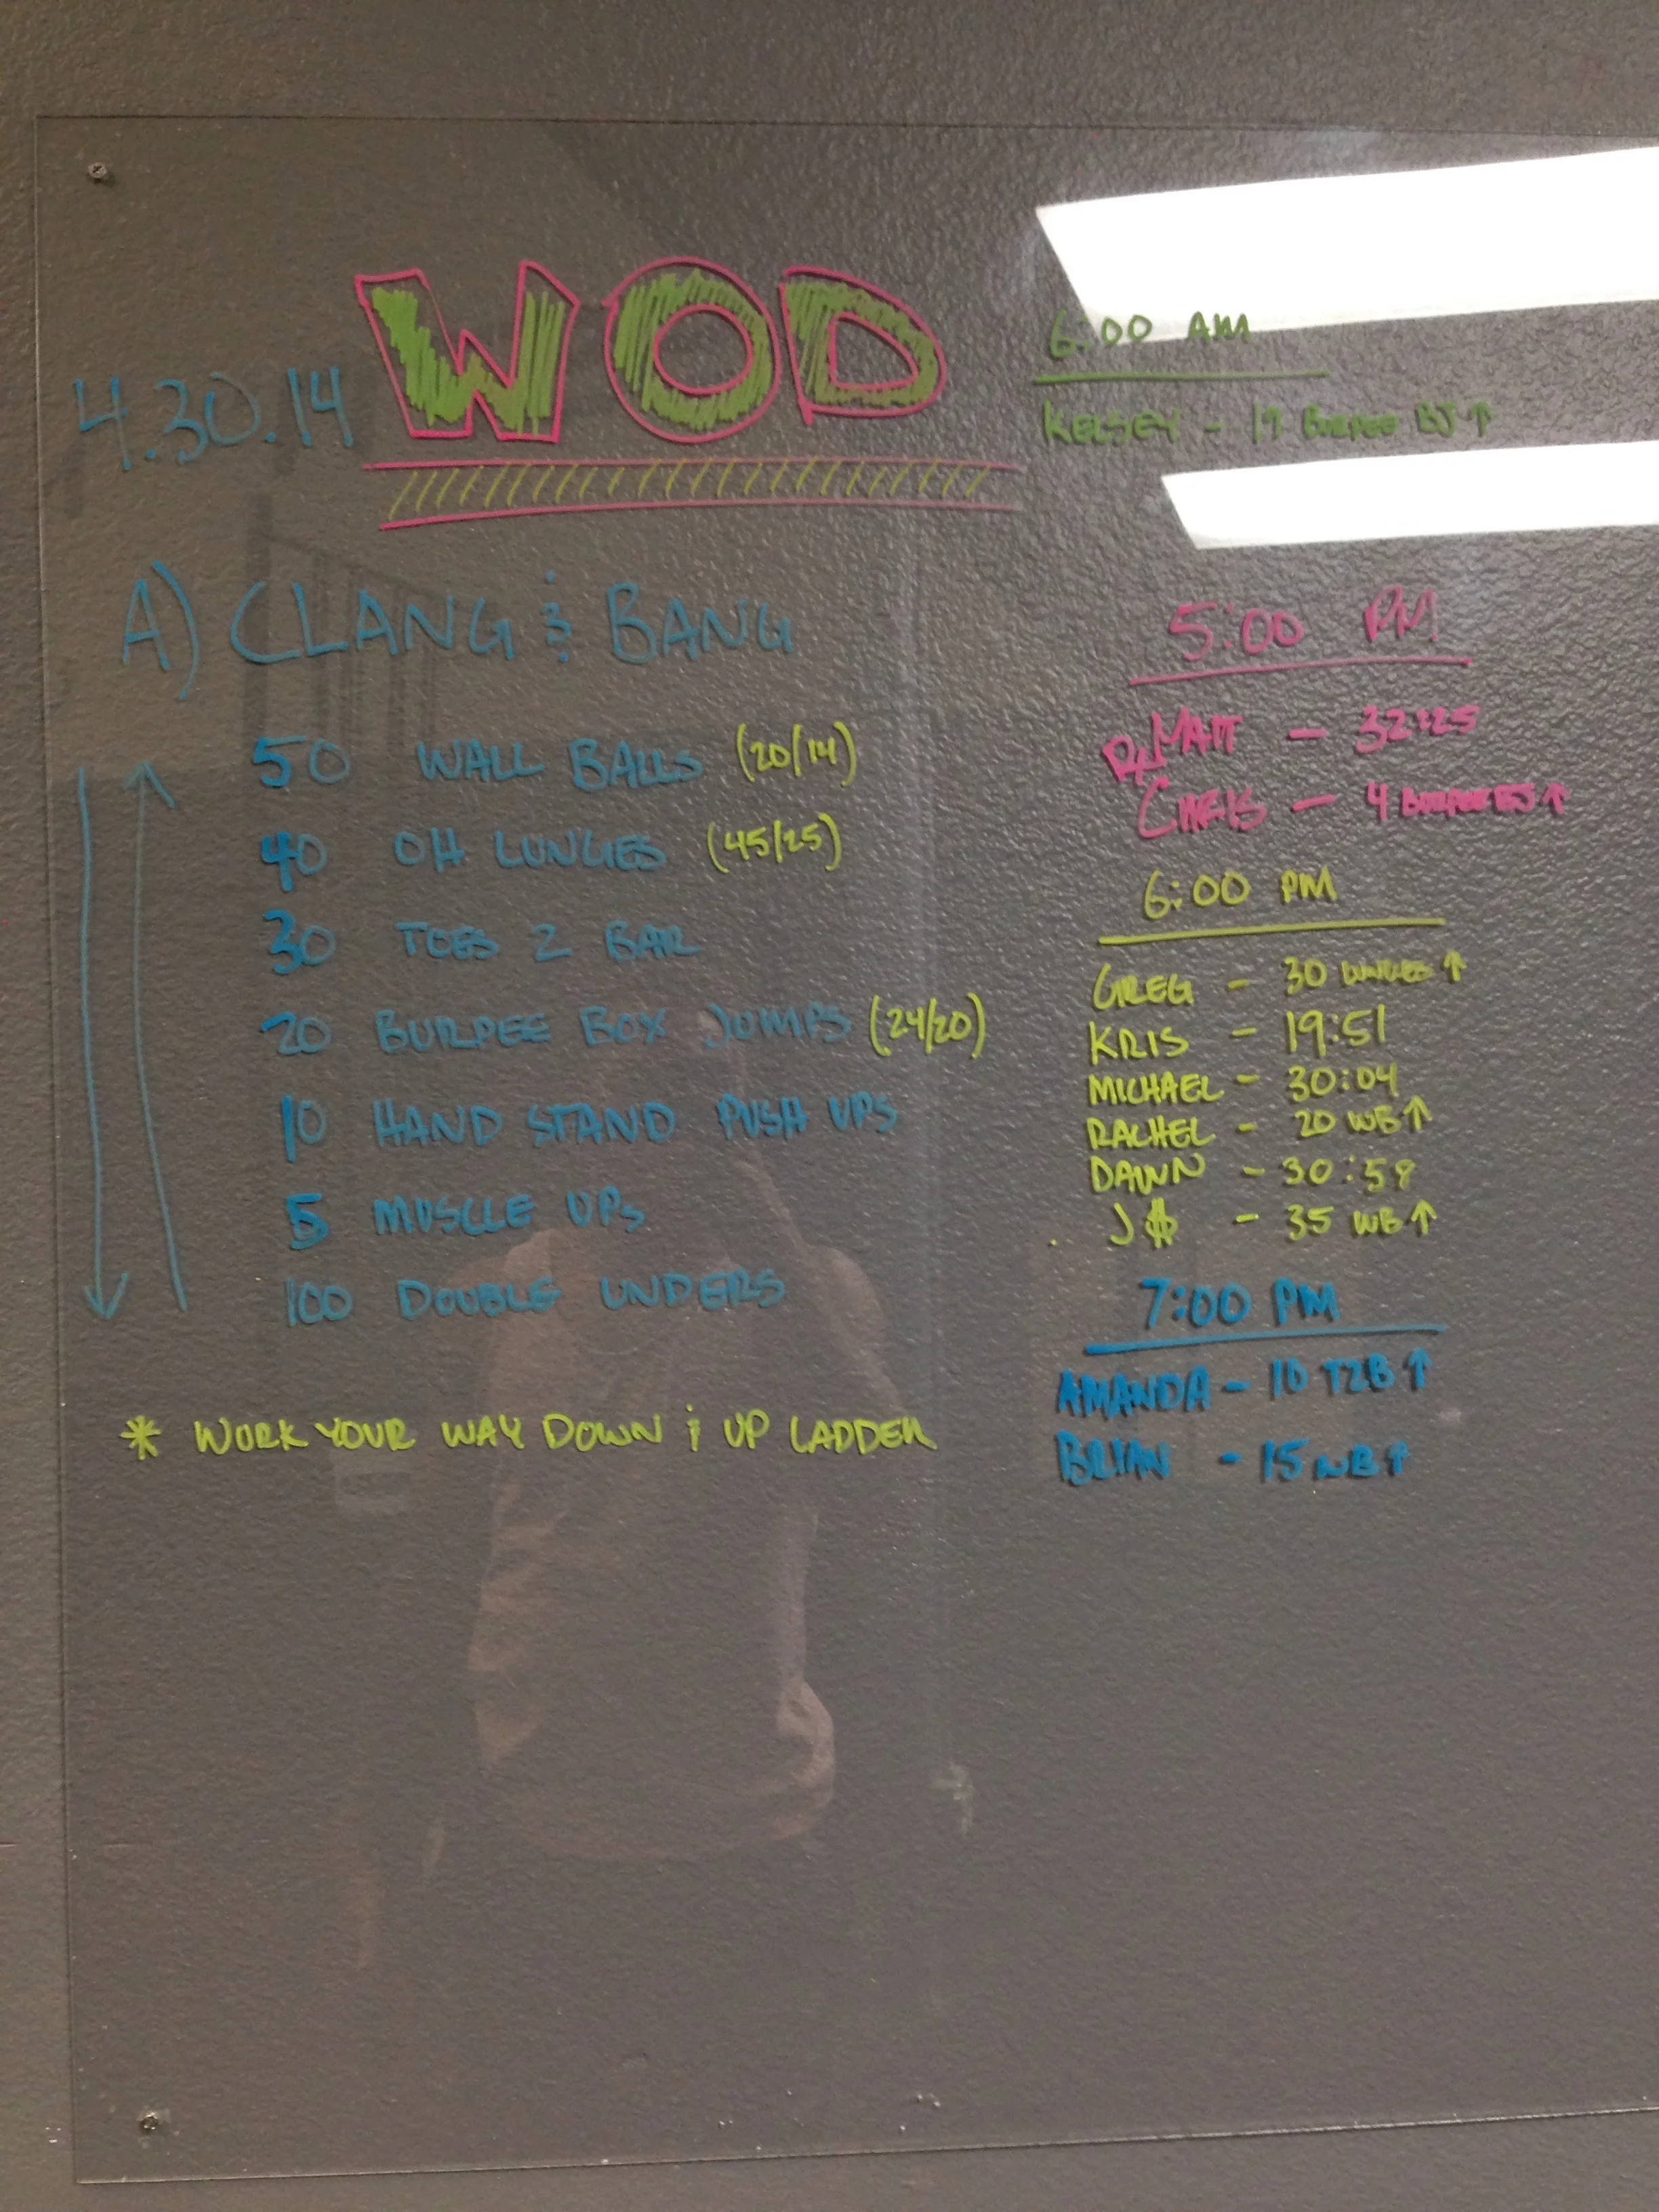 WOD
4.30.14
A) CLANG & BANG
50 WALL BALLS (20/14)
40 OH LUNGES (45/25)
30 TOES 2 BAR
20 BURPEE BOX JUMPS (24/20)
10 HAND STAND PUSH UPS
5 MUSCLE UPS
100 DOUBLE UNDERS
* WORK YOUR WAY DOWN & UP LADDER
6:00 AM
KELSEY - 17 BURPEE BJ ↑
5:00 PM
Rx MATT - 32:25
CHRIS - 4 BURPEE BJ ↑
6:00 PM
GREG - 30 LUNGES ↑
KRIS - 19:51
MICHAEL - 30:04
RACHEL - 20 WB ↑
DAWN - 30:58
J$ - 35 WB ↑
7:00 PM
AMANDA - 10 T2B ↑
BRYAN - 15 WB ↑